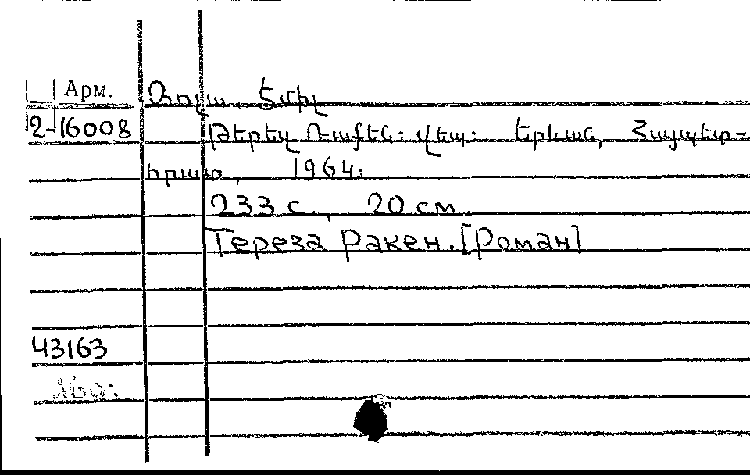 Арм.
Զոլա, Էմիլ
2-16008
Թերեզ Ռաքեն: Վեպ: Երևան, Հայպետ-
հրատ, 1964:
233 с., 20 см.
Тереза Ракен. [Роман]
43163